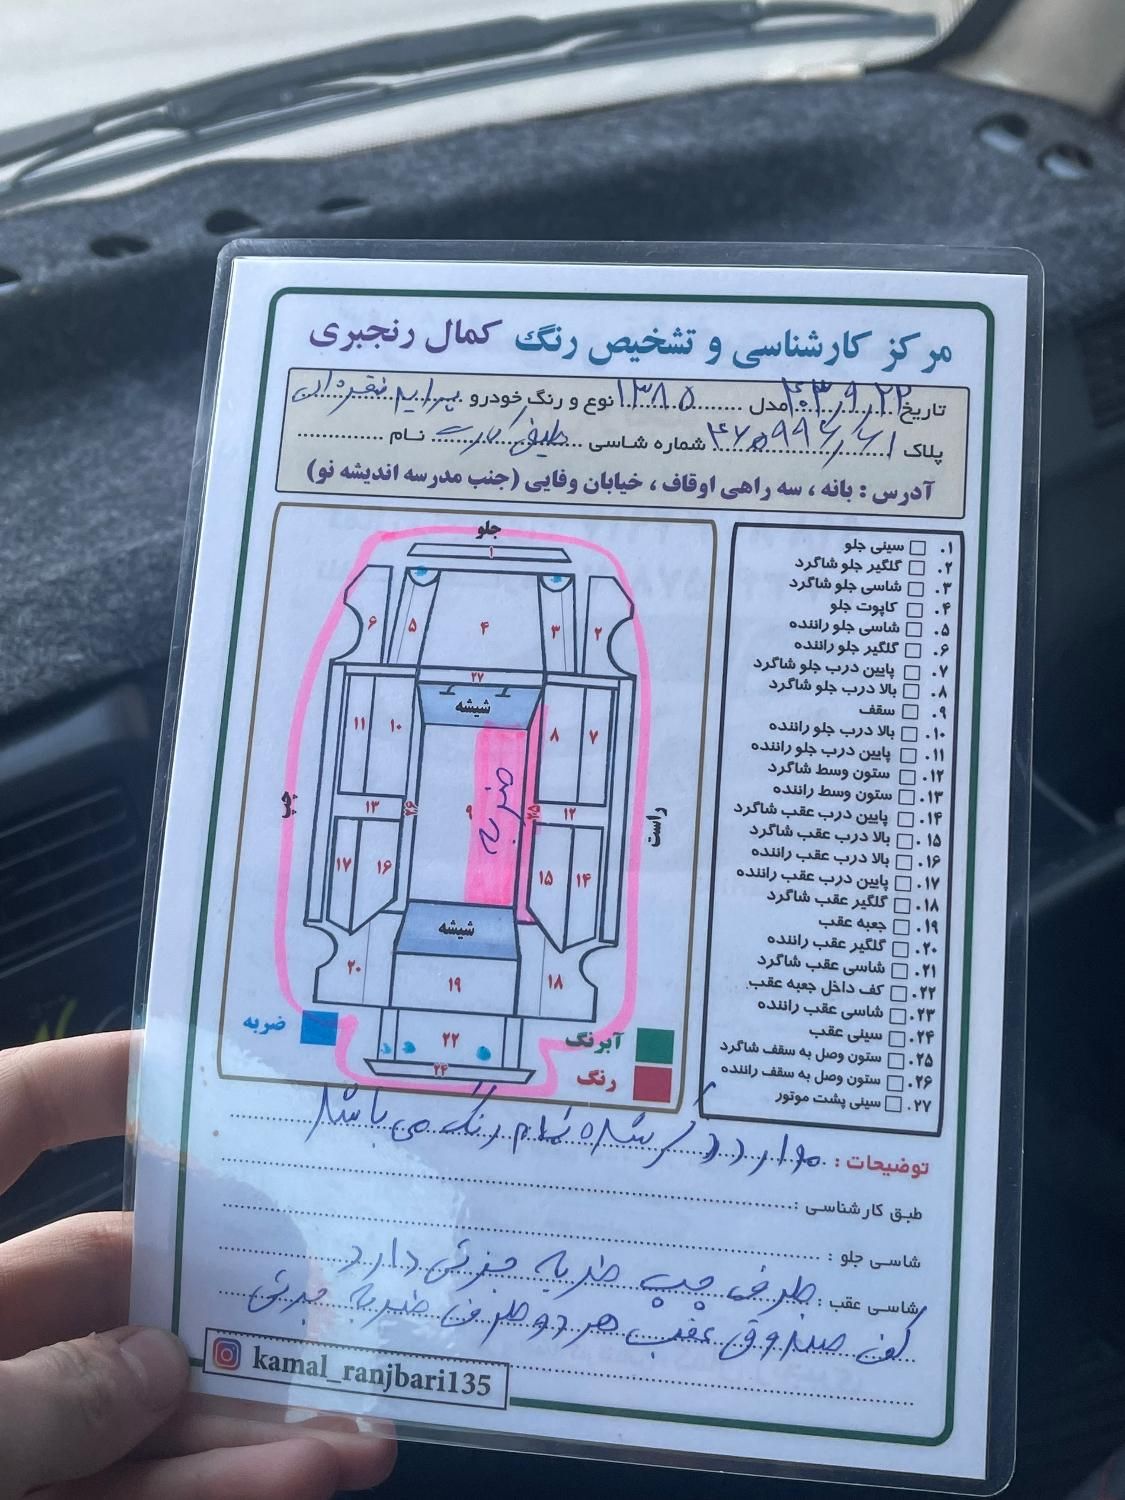 مرکز کارشناسی و تشخیص رنگ کمال رنجبری
تاریخ ۴۰۳/۹/۲۲ مدل ۱۳۸۵ نوع و رنگ خودرو پراید نقره‌ای
پلاک شماره شاسی نام
آدرس : بانه ، سه راهی اوقاف ، خیابان وفایی (جنب مدرسه اندیشه نو)
۱. سینی جلو
۲. گلگیر جلو شاگرد
۳. شاسی جلو شاگرد
۴. کاپوت جلو
۵. شاسی جلو راننده
۶. گلگیر جلو راننده
۷. پایین درب جلو شاگرد
۸. بالا درب جلو شاگرد
۹. سقف
۱۰. بالا درب جلو راننده
۱۱. پایین درب جلو راننده
۱۲. ستون وسط شاگرد
۱۳. ستون وسط راننده
۱۴. پایین درب عقب شاگرد
۱۵. بالا درب عقب شاگرد
۱۶. بالا درب عقب راننده
۱۷. پایین درب عقب راننده
۱۸. گلگیر عقب شاگرد
۱۹. جعبه عقب
۲۰. گلگیر عقب راننده
۲۱. شاسی عقب شاگرد
۲۲. کف داخل جعبه عقب
۲۳. شاسی عقب راننده
۲۴. سینی عقب
۲۵. ستون وصل به سقف شاگرد
۲۶. ستون وصل به سقف راننده
۲۷. سینی پشت موتور
جلو
۱
۲ ۳ ۴ ۵ ۶
۲۷
شیشه
۷ ۸ ۱۰ ۱۱
ضربه
راست
چپ
۱۲ ۲۵ ۹ ۲۶ ۱۳
۱۴ ۱۵ ۱۶ ۱۷
شیشه
۱۸ ۱۹ ۲۰
۲۲
۲۴
آبرنگ
رنگ
ضربه
توضیحات : موارد ذکر شده تمام رنگ می باشد
طبق کارشناسی :
شاسی جلو :
شاسی عقب : طرف چپ ضربه جزئی دارد
کف صندوق عقب هر دو طرف ضربه جزئی
kamal_ranjbari135